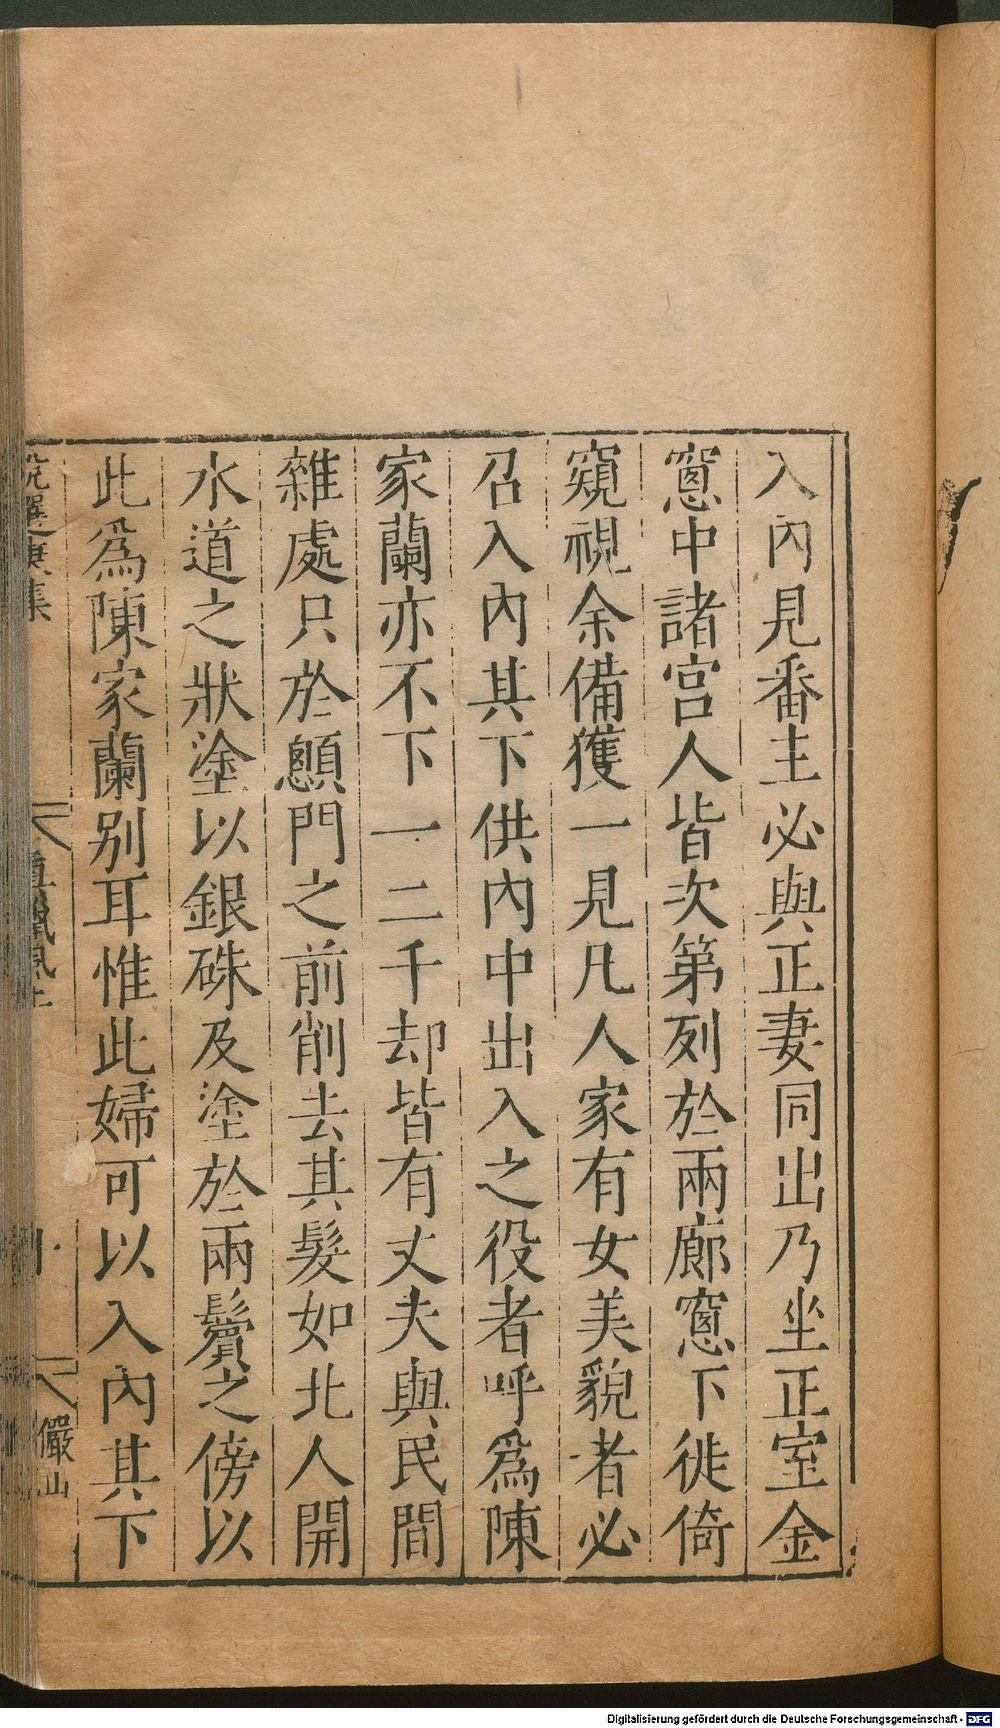 入內見番主必與正妻同出乃坐正室金
窻中諸宮人皆次第列於兩廊窻下徙倚
窺視余備獲一見凡人家有女美貌者必
召入內其下供內中出入之役者呼爲陳
家蘭亦不下一二千却皆有丈夫與民間
雜處只於顖門之前削去其髮如北人開
水道之狀塗以銀硃及塗於兩鬢之傍以
此爲陳家蘭别耳惟此婦可以入內其下
說選庚集
真臘風土
儼山
Digitalisierung gefördert durch die Deutsche Forschungsgemeinschaft - DFG